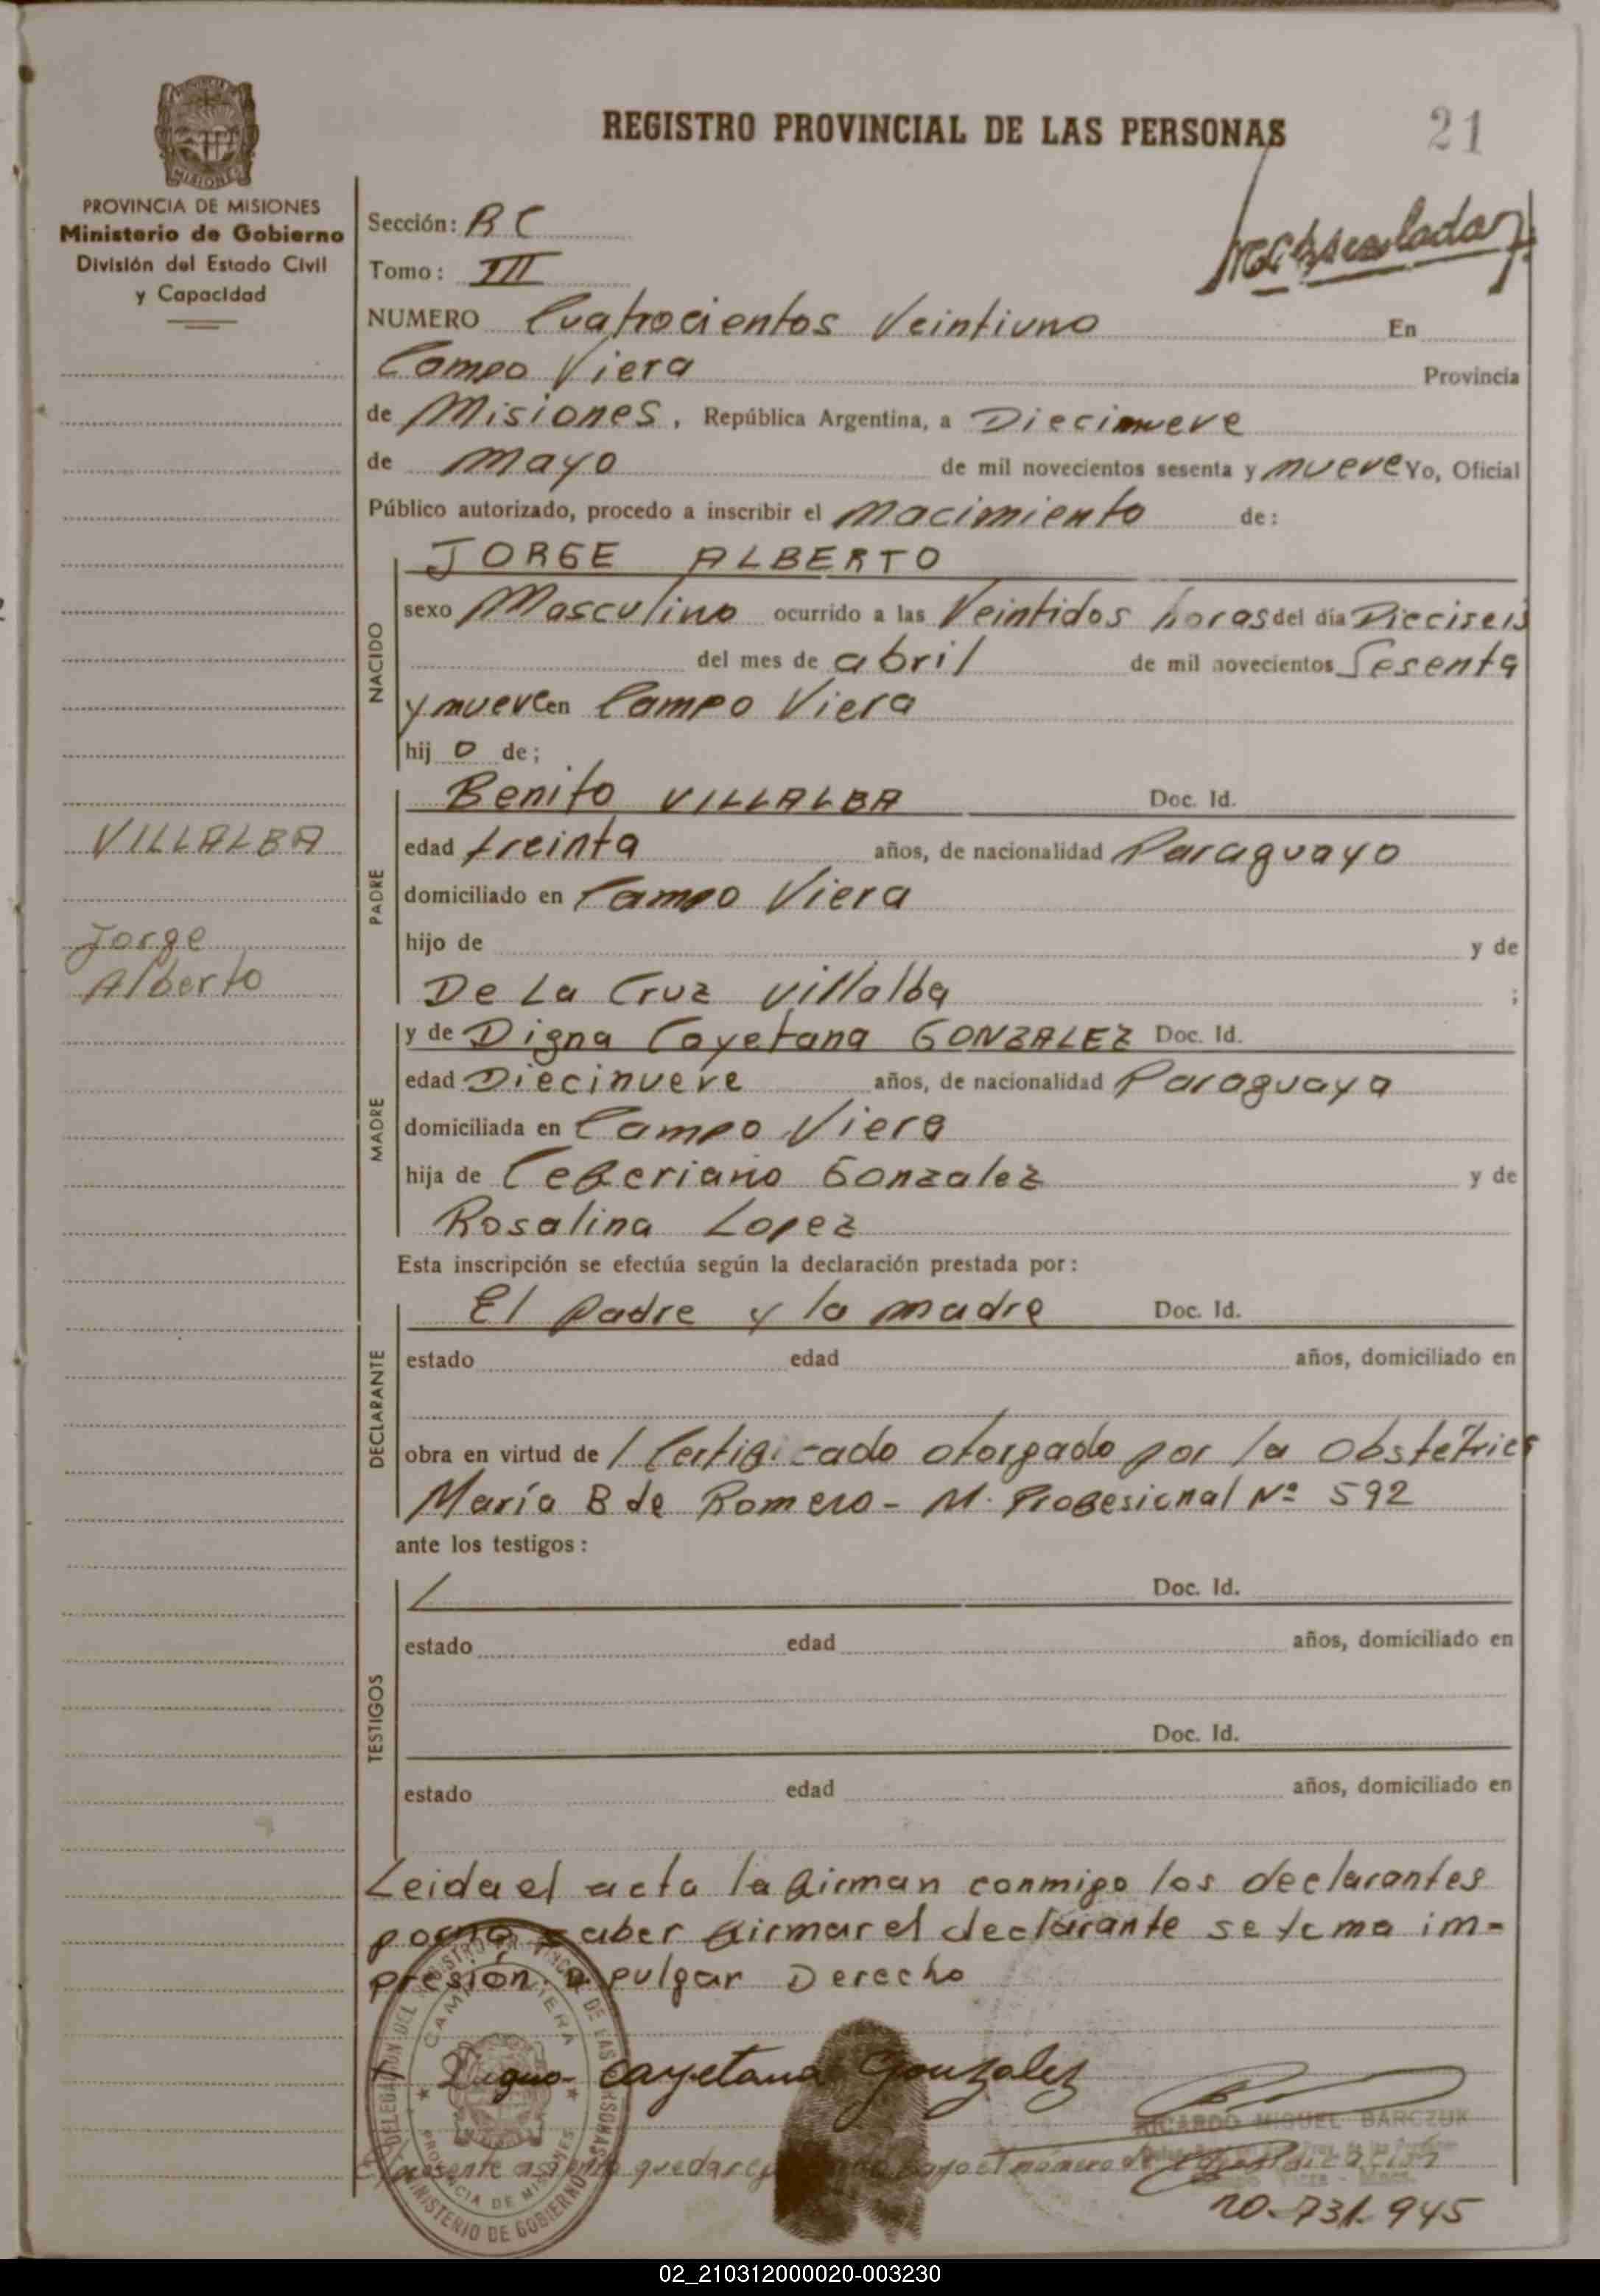 REGISTRO PROVINCIAL DE LAS PERSONAS
21
PROVINCIA DE MISIONES
Ministerio de Gobierno
División del Estado Civil
y Capacidad
Sección: BC
Tomo: III
NUMERO Cuatrocientos Veintiuno En
Campo Viera Provincia
de Misiones, República Argentina, a Diecinueve
de Mayo de mil novecientos sesenta y nueve Yo, Oficial
Público autorizado, procedo a inscribir el Nacimiento de:
NACIDO
JORGE ALBERTO
sexo Masculino ocurrido a las Veintidos horas del día Dieciseis
del mes de abril de mil novecientos Sesenta
y nueve en Campo Viera
hij o de;
PADRE
Benito VILLALBA Doc. Id.
edad treinta años, de nacionalidad Paraguayo
domiciliado en Campo Viera
hijo de y de
De La Cruz Villalba ;
VILLALBA
Jorge
Alberto
MADRE
y de Digna Cayetana GONZALEZ Doc. Id.
edad Diecinueve años, de nacionalidad Paraguaya
domiciliada en Campo Viera
hija de Ceferiano Gonzalez y de
Rosalina Lopez
Esta inscripción se efectúa según la declaración prestada por:
DECLARANTE
El padre y la madre Doc. Id.
estado edad años, domiciliado en
obra en virtud de / Certificado otorgado por la Obstetrica
María B de Romero - M. Profesional Nº 592
ante los testigos:
TESTIGOS
Doc. Id.
estado edad años, domiciliado en
Doc. Id.
estado edad años, domiciliado en
Leida el acta la firman conmigo los declarantes
por no saber firmar el declarante se toma im-
presión. D pulgar Derecho
Digna Cayetana Gonzalez
DELEGACION DEL REGISTRO PROVINCIAL DE LAS PERSONAS
CAMPO VIERA
PROVINCIA DE MISIONES
MINISTERIO DE GOBIERNO
RICARDO MIGUEL BARCZUK
presente asiento queda
número de
20.731.945
02_210312000020-003230